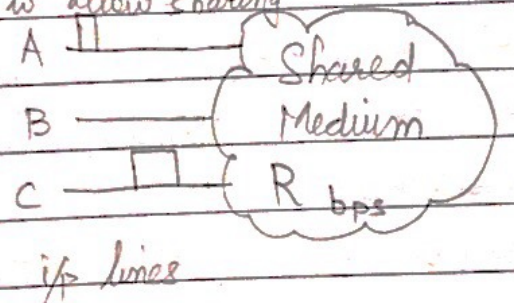 to allow sharing
A
Shared
B
Medium
C
R bps
i/p lines